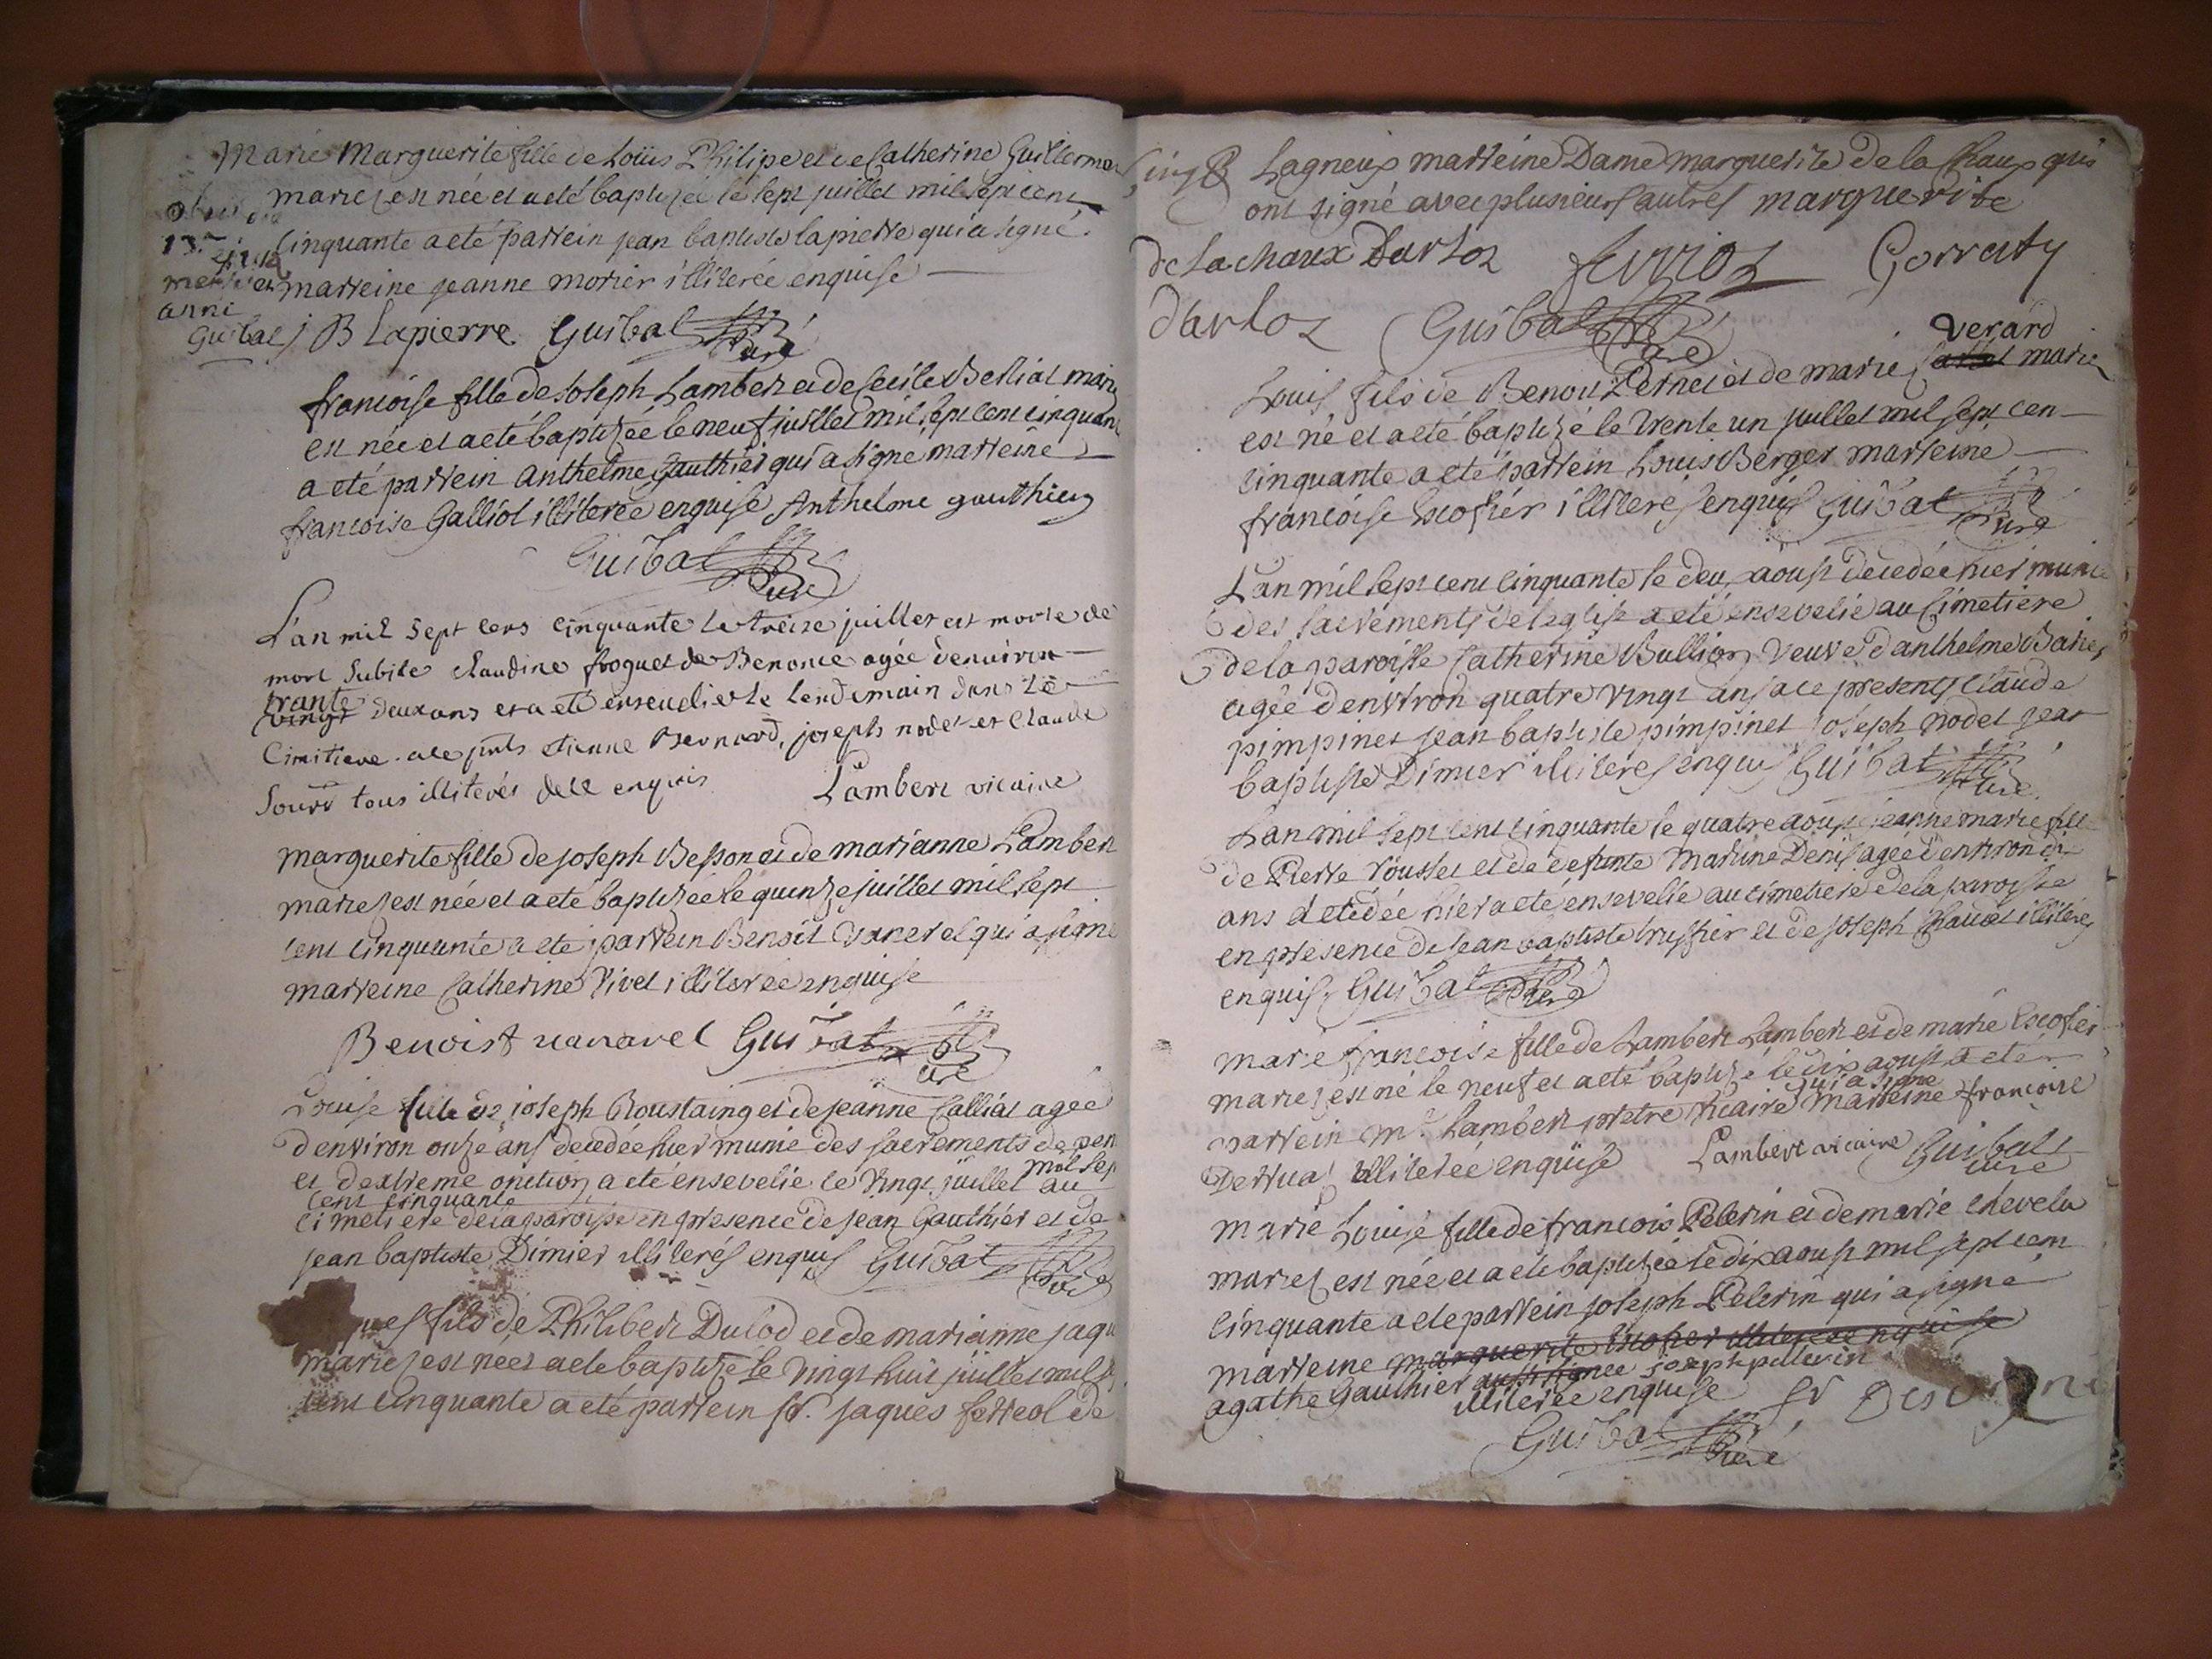 Marie Marguerite fille de Loüis Philipe et de Catherine Guillermet
mariez est née et a eté baptizée le sept juillet mil sept cent
cinquante a eté parrein jean baptiste lapierre qui a signé
marreine jeanne morier illiterée enquise
obiit die
13.
anni
Guibal
J B Lapierre Guibal curé
francoise fille de Joseph Lambert et de Cecile Belliat mariez
est née et a eté baptizée le neuf juillet mil sept cent cinquante
a eté parrein Anthelme Gauthier qui a signé marreine
francoise Galliot illiterée enquise Anthelme gauthier
Guibal curé
L'an mil sept cens cinquante le treize juillet est morte de
mort subite claudine froquet de Benonce agée denviron
trante
vingt deux ans et a eté ensevelie le lendemain dans le
Cimitiere. ale pnts etienne Bernard, joseph nodet et Claude
tous illiterés de ce enquis Lambert vicaire
marguerite fille de joseph Besson et de marianne Lambert
mariez est née et a eté baptizée le quinze juillet mil sept
cent cinquante a eté parrein Benoit vanarel qui a signé
marreine Catherine Vivet illiterée enquise
Benoist vanarel Guibal curé
Louise fille de joseph Roustaing et de jeanne Calliat agée
denviron onze ans decedée hier munie des sacrements de pen
et dextreme onction a eté ensevelie le vingt juillet mil sep
cent cinquante au
cimetiere de la paroisse en presence de jean Gauthier et de
jean baptiste Dimier illiterés enquis Guibal curé
ques fils de Philibert Dulod et de marianne jaqu
mariez est né et a eté baptizé le vingt huit juillet mil s
cent cinquante a eté parrein sr. jaques ferreol de
Lagneux marreine Dame marguerite de la Chaux qui
ont signé avec plusieurs autres marguerite
de Lachaux Darloz ferrioz Gorraty
Darloz Guibal curé
verard
Louis fils de Benoit Pernet et de marie mariez
est né et a eté baptizé le trente un juillet mil sept cen
cinquante a eté parrein Louis Berger marreine
francoise Escofier illiterés enquis Guibal curé
L'an mil sept cent cinquante le deux aoust decedée hier munie
des sacrements de leglise a eté ensevelie au Cimetiere
de la paroisse Catherine Bullion veuve d'anthelme
agée denviron quatre vingt ans a ce presents Claude
pimpinet jean baptiste pimpinet joseph nodet jean
baptiste Dimier illiterés enquis Guibal curé
L'an mil sept cent cinquante le quatre aoust jeanne marie fille
de Pierre rousset et de defunte Martine Denis agée denviron dix
ans decedée hier a eté ensevelie au cimetiere de la paroisse
en presence de jean baptiste truffier et de joseph Chavat illiterés
enquis Guibal curé
marie francoise fille de Lambert Lambert et de marie Escofier
mariez est né le neuf et a eté baptizé le dix aoust a eté
parrein mr. Lambert pretre vicaire qui a signé marreine francoise
Derrua illiterée enquise Lambert vicaire Guibal curé
marie Louise fille de francois Pelerin et de marie chevelu
mariez est née et a eté baptizée le dix aoust mil sept cent
cinquante a eté parrein joseph Pelerin qui a signé
marreine marguerite Escofier illiterée enquise
agathe Gauthier aussi signee joseph pellerin
illiterée enquise
Guibal curé